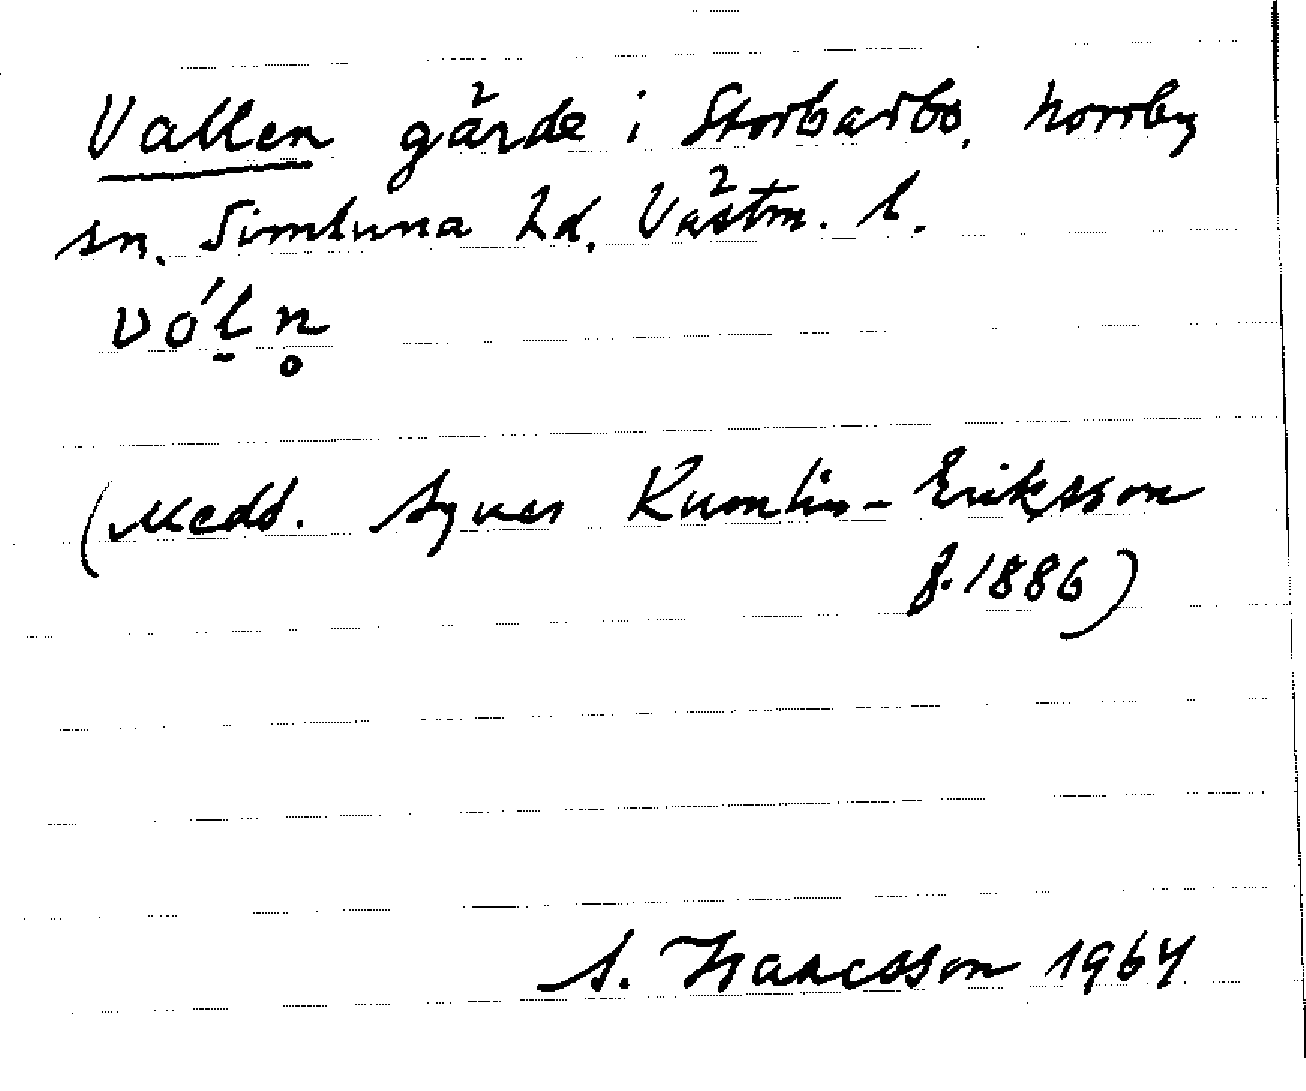 Vallen gärde i Storbarbo, Norrby
sn. Simtuna hd. Västm. l.
vól̠n̥
(Medd. Agnes Kumlin-Eriksson
f. 1886)
A. Isaacsson 1964